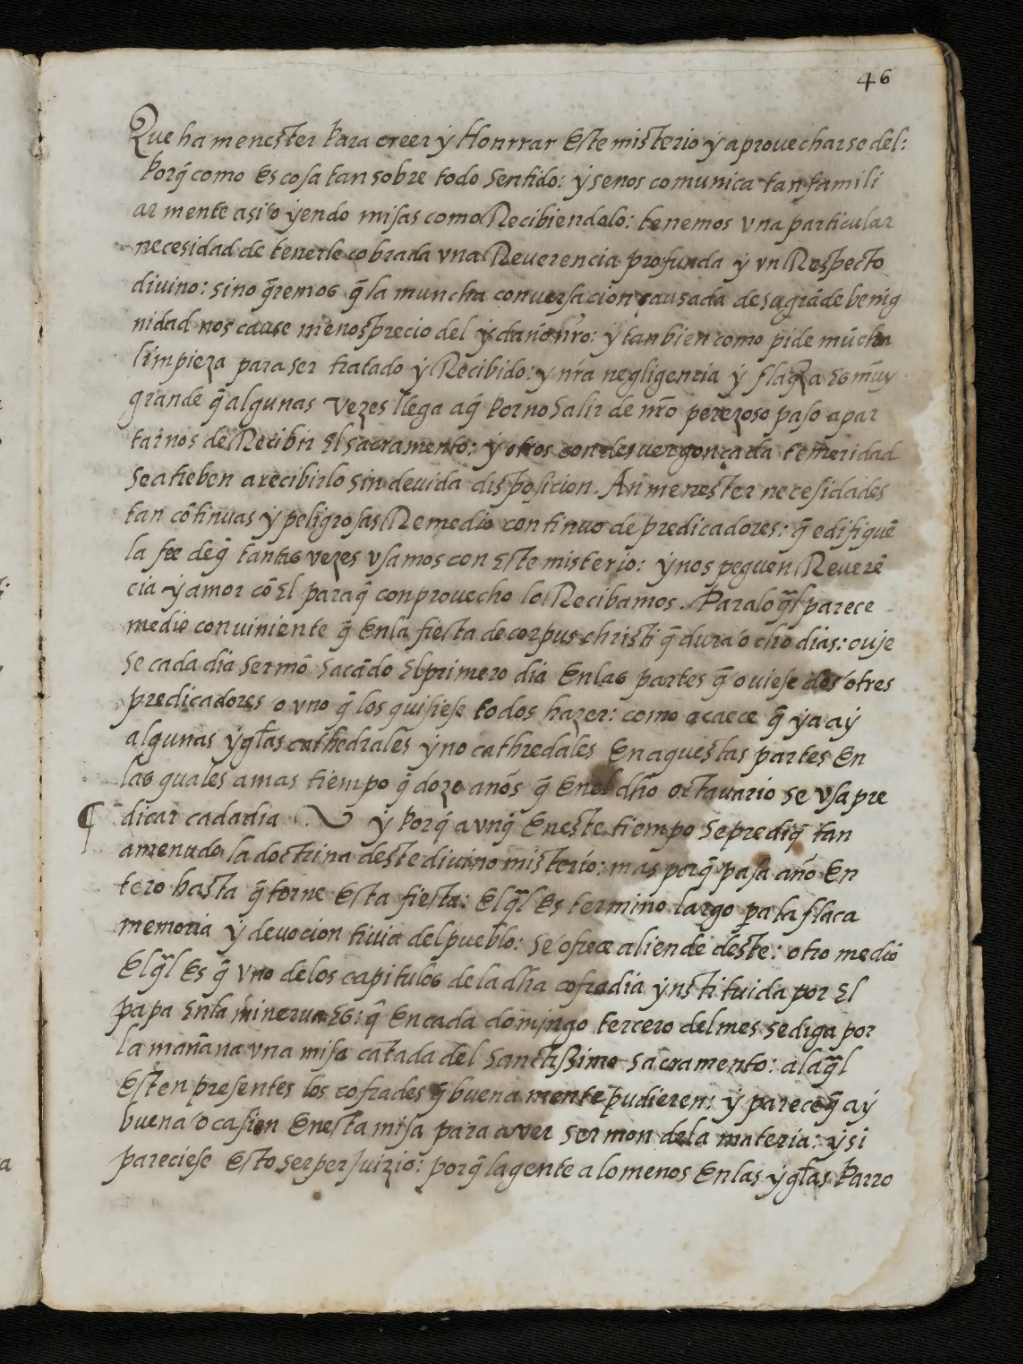 46
Que ha menester para creer ẏ Honrrar Este misterio ẏ aprouecharse del:
porq̃ como Es cosa tan sobre todo sentido: ẏ senos comunica tan famili
armente asi o ẏendo misas como Recibiendolo: tenemos vna particular
necesidad de tenerle cobrada vna Reuerencia profunda ẏ vn Respecto
diuino: sino q̃remos q̃ la muncha conuersacion causada de su grãde benig
nidad nos cause menosprecio del ẏ daño nr̃o: ẏ tanbien como pide mũcha
limpieza para ser tratado ẏ Recibido: ẏ nr̃a negligencia ẏ flaq̃za Es muẏ
grande q̃ algunas vezes llega aq̃ por no salir de nr̃o perezoso paso apar
tarnos de Recibir El sacramento: ẏ otros con desuergonçada temeridad
se atreben a recibirlo sin deuida disposicion. An menester necesidades
tan cõtinuas ẏ peligrosas Remedio continuo de predicadores: q̃ edifiquẽ
la fee de q̃ tantas vezes vsamos con Este misterio: ẏ nos peguen Reuerẽ
cia ẏ amor cõ El para q̃ con prouecho lo Recibamos. Para lo q̃l parece
medio conuiniente q̃ En la fiesta de corpus christi q̃ dura ocho dias: ouje
se cada dia sermõ sacãdo El primero dia En las partes q̃ ouiese dos otres
predicadores o vno q̃ los quisiese todos hazer: como acaece q̃ ẏa aẏ
algunas ẏgl̃as cathedrales ẏ no cathredales En aquestas partes En
las quales a mas tiempo q̃ doze años q̃ En el dh̃o octauario se vsa pre
¶ dicar cada dia. ẏ porq̃ avnq̃ En este tiempo se prediq̃ tan
amenudo la doctrina deste diuino misterio: mas porq̃ pasa año En
tero hasta q̃ torne Esta fiesta: El q̃l Es termino largo pa la flaca
memoria ẏ deuocion tiuia del pueblo: se ofrece aliende deste: otro medio
El q̃l Es q̃ vno delos capitulos dela dh̃a cofradia ẏnstituida por El
papa En la minerua Es: q̃ En cada domingo tercero del mes se diga por
la mañana vna misa cãtada del Sanctissimo sacramento: ala q̃l
Esten presentes los cofrades q̃ buena mente pudieren: ẏ parece q̃ aẏ
buena ocasion En esta misa para aver sermon dela materia: ẏ si
pareciese Esto ser perjuizio: porq̃ la gente alo menos En las ẏgl̃as Parro